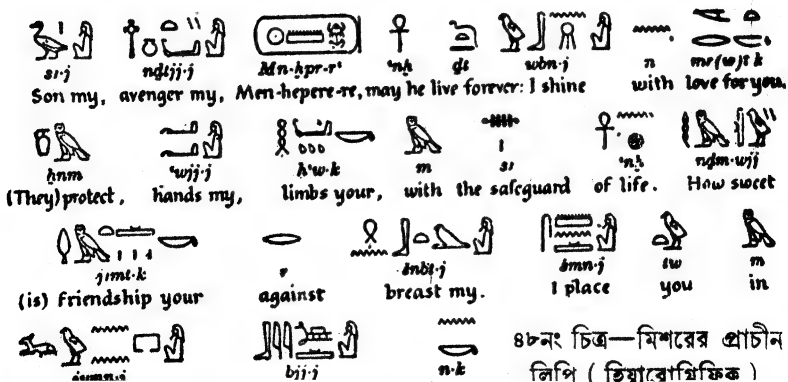 sı·j nḏtjj·j Mn-ḫpr-rʿ ʿnḫ ḏt wbn·j n mr(w)t k
Son my, avenger my, Men-hepere-re, may he live forever: I shine with love for you.
ẖnm ʿwjj·j ḥʿw·k m sı ʿnḫ nḏm·wjj
(They) protect, hands my, limbs your, with the safeguard of life. How sweet
jımt·k r šnbt·j śmn·j tw m
(is) friendship your against breast my. I place you in
bjj·j n·k
৪৮নং চিত্র—মিশরের প্রাচীন
লিপি ( হিয়ারোগ্লিফিক )